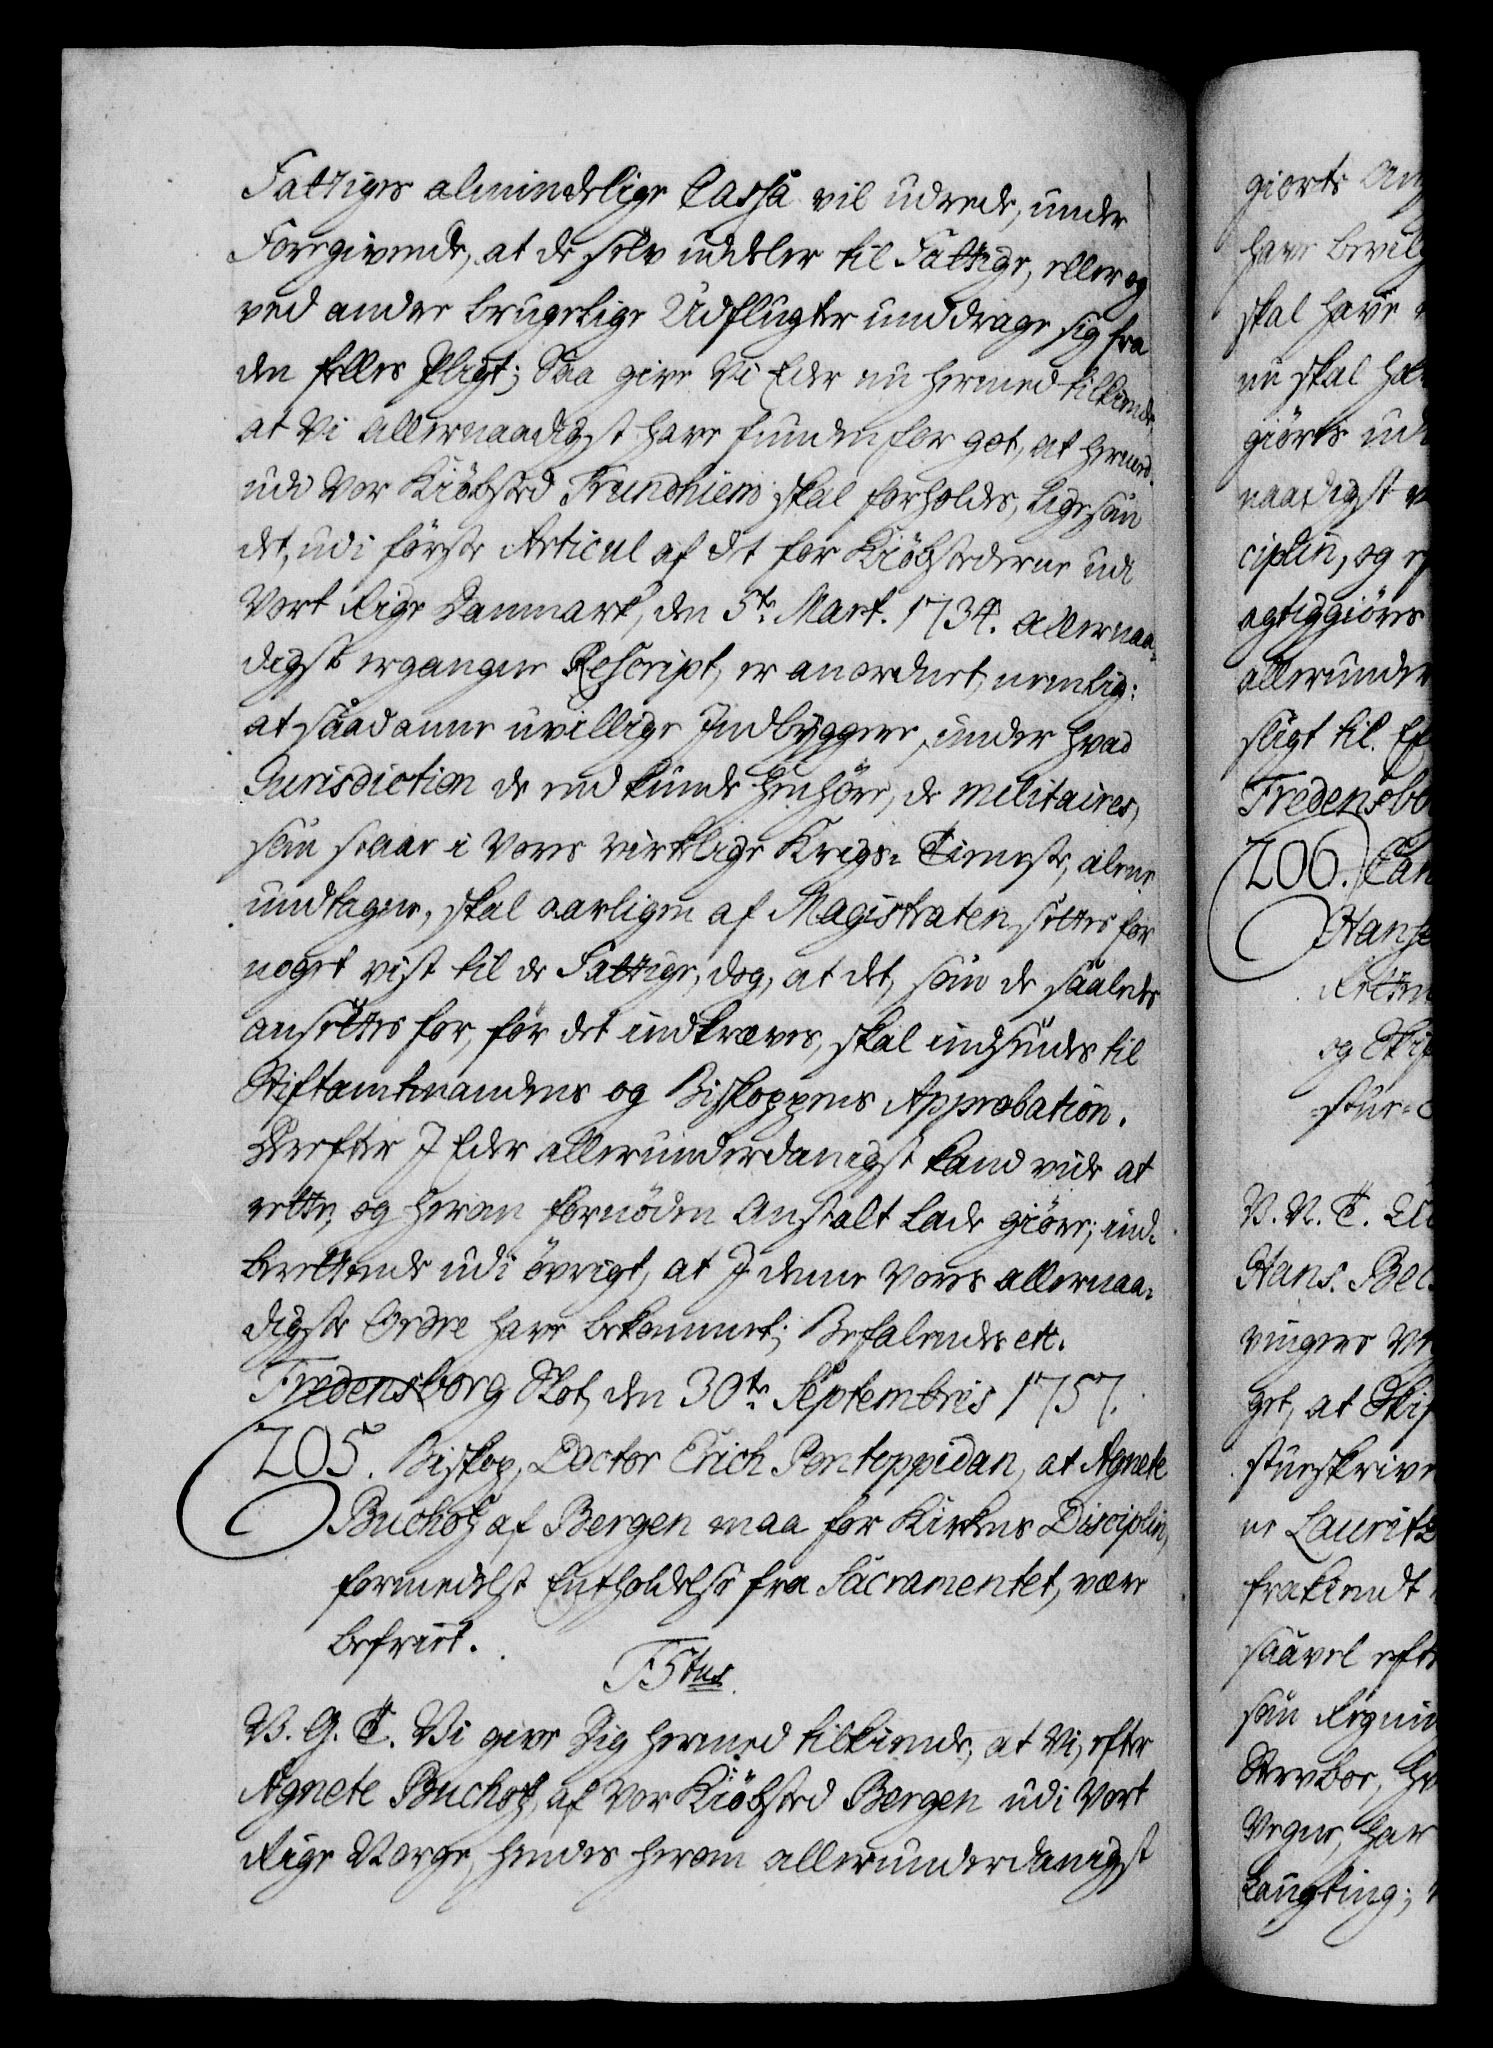 Fattiges almindelige Cassa vil udrede, under
Foregivende, at de selv uddeler til Fattige, eller og
ved andre brugelige Udflugter unddrage sig fra
den fælles Pligt; Saa give Vi Eder nu hermed tilkiende,
at Vi allernaadigst have funden for got, at hermed
udi Vor Kiöbsted Trundhiem skal forholdes, ligesom
det, udi förste Articul af det for Kiöbstederne udi
Vort Rige Danmark, den 5te Mart. 1734. allernaa-
digst ergangne Rescript, er anordnet, nemlig:
at saadanne uvillige Indbyggere, under hvad
Jurisdiction de end kunde henhöre, de militaires,
som staar i Vores virkelige Krigs-Tieneste, alene
undtagne, skal aarligen af Magistraten settes for
noget vist til de Fattige, dog, at det, som de saaledes
ansettes for, för det indkræves, skal indsendes til
Stiftamtmandens og Biskoppens Approbation.
Derefter I Eder allerunderdanigst kand vide at
rette, og herom fornöden Anstalt lade giöre; ind-
berettende udi övrigt, at I denne Vores allernaa-
digste Ordre have bekommet; Befalendes etc.
Fredensborg Slot, den 30te Septembris 1757.
205. Biskop, Doctor Erich Pontoppidan, at Agnete
Bucholtz af Bergen maa for Kirkens Disciplin,
formedelst Entholdelse fra Sacramentet, være
befriet.
F5tus
V. G. T. Vi give Dig hermed tilkiende, at Vi, efter
Agnete Bucholtz, af Vor Kiöbsted Bergen udi Vort
Rige Norge, hendes herom allerunderdanigst
giorte
have
skal have
nu skal
giörts
naadigst
ciplin, og
agtiggiöres
allerunder
sligt til.
Fredensbo
206.
Hans
og
V. V. T.
Hans. Bel
vingers
get, at
stueskrive
ne Lauritz
frakiendt
saavel efte
som
Vegne, har
Laugting;